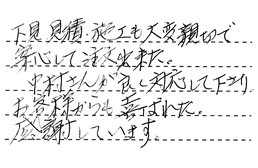 下見見積、施工も大変親切で
安心して注文出来た。
中村さんが良く対応して下さり
お客様からも喜ばれた。
感謝しています。